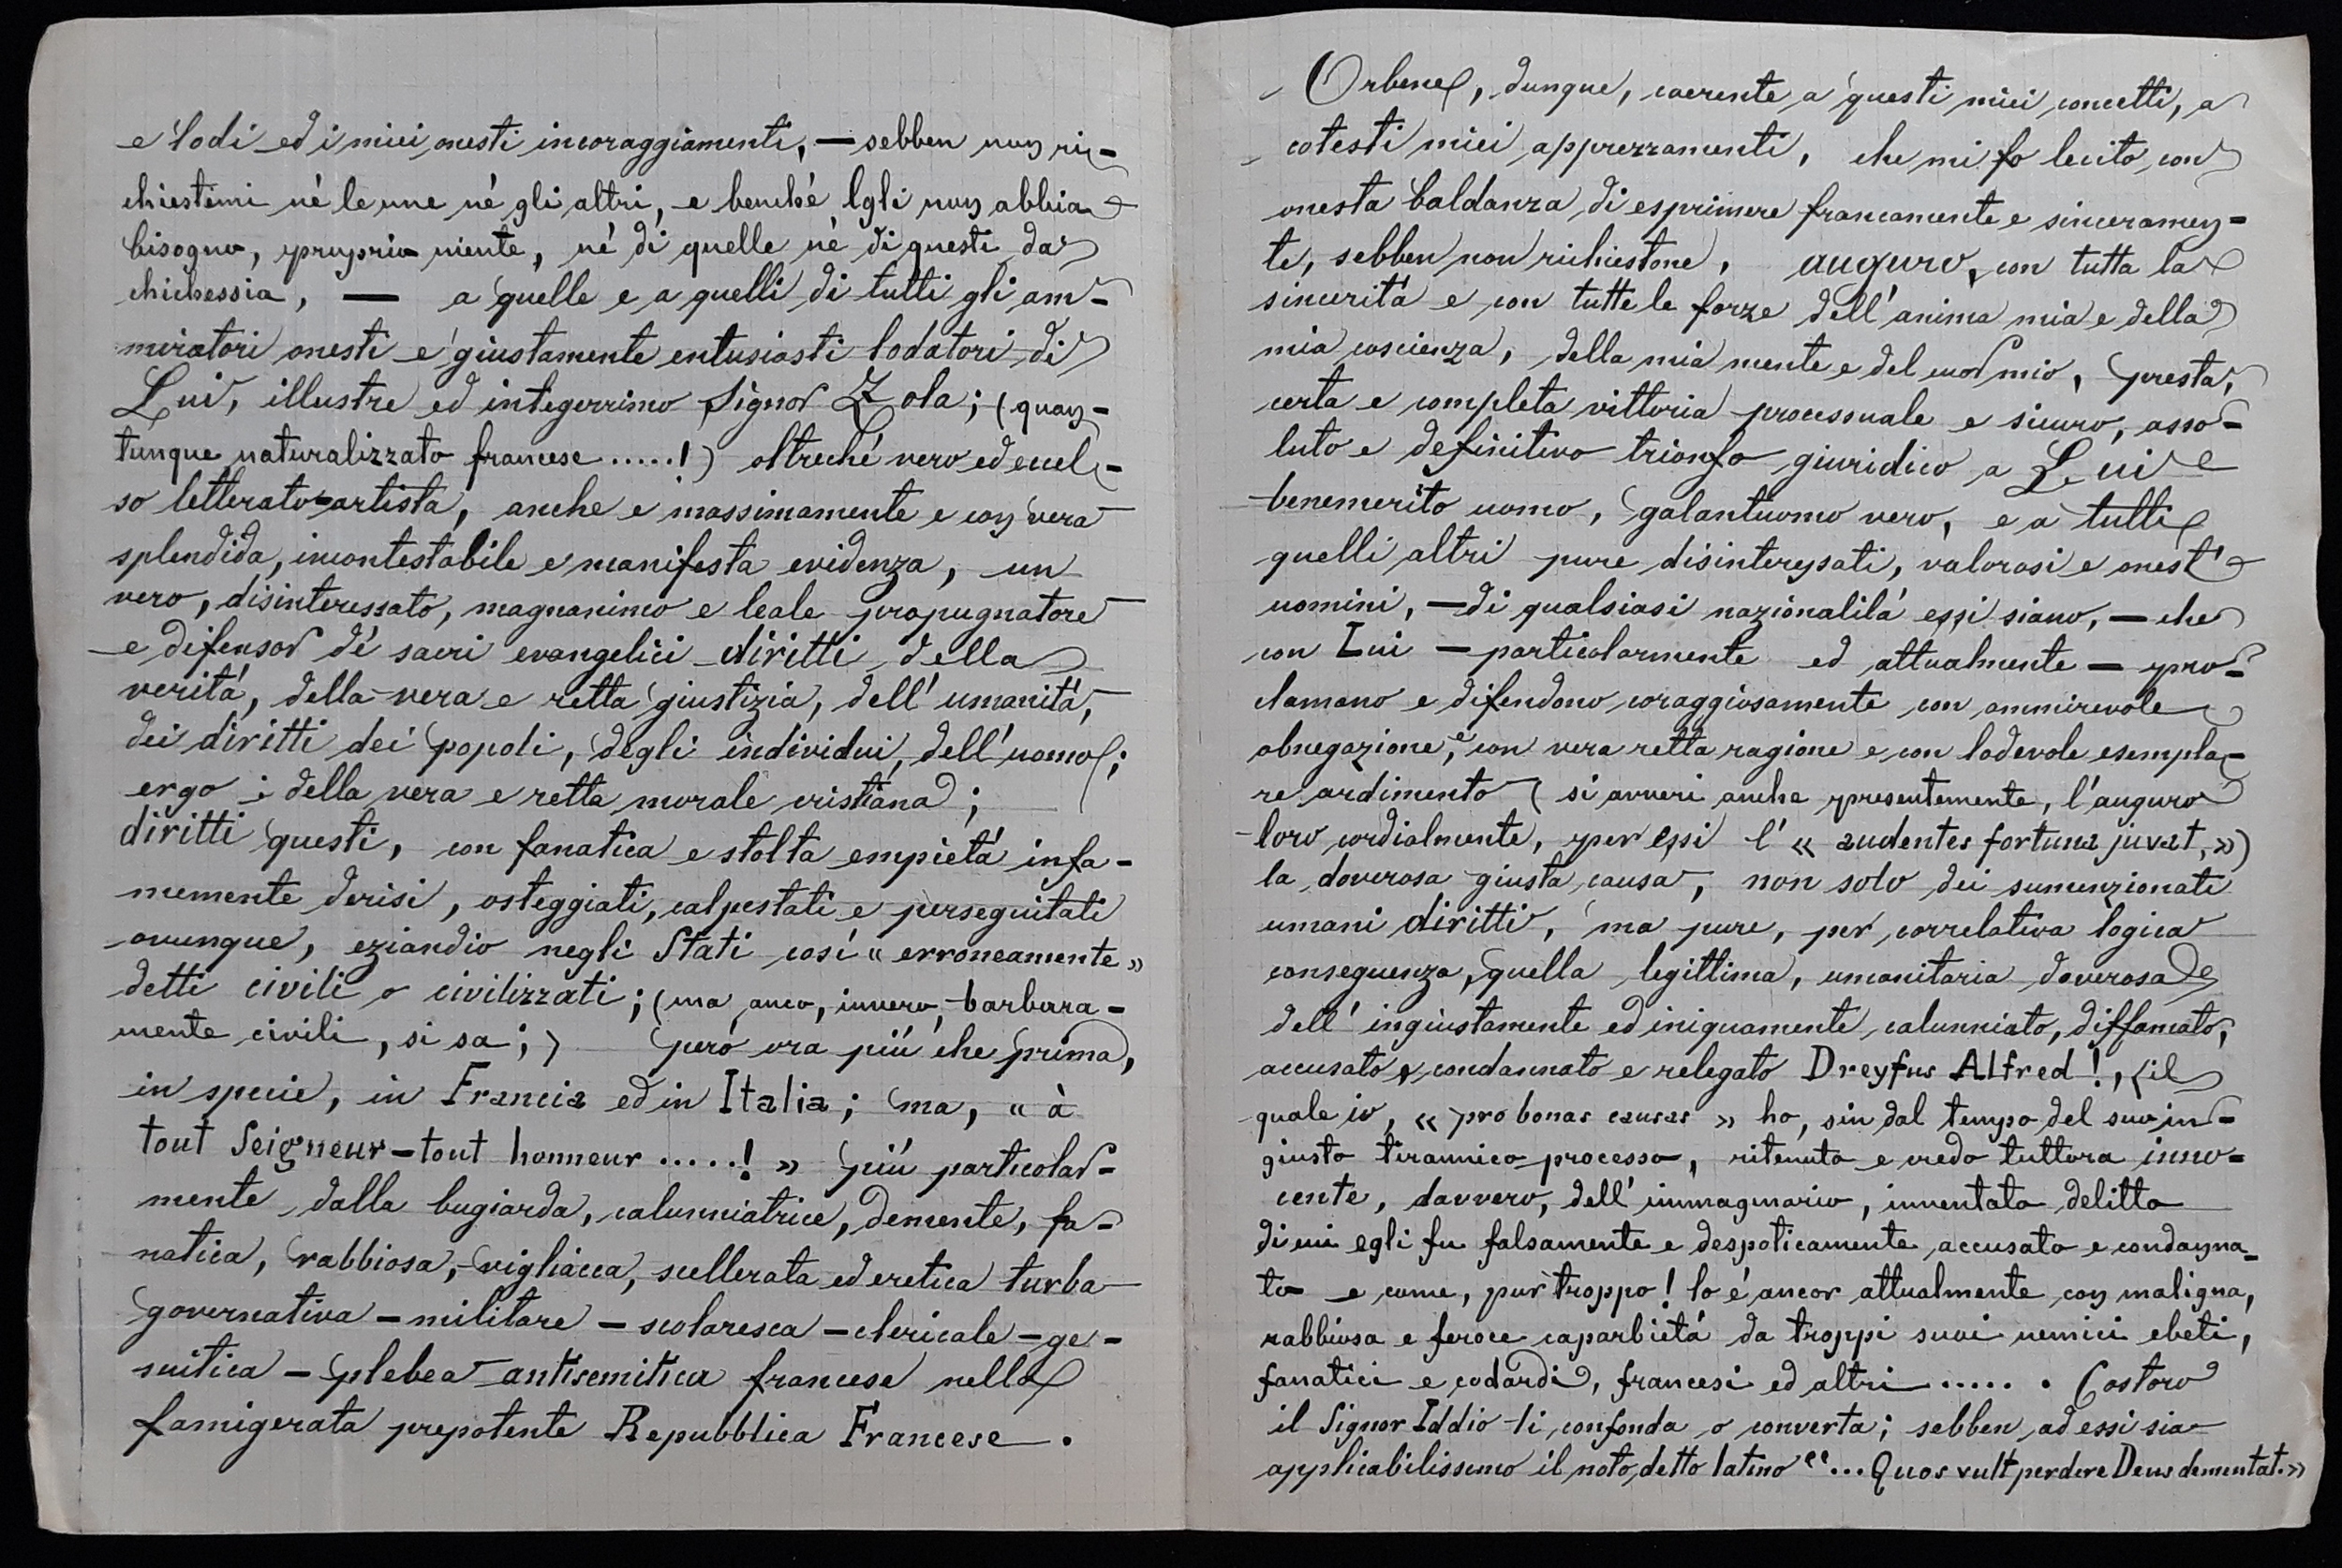 e lodi ed i miei onesti incoraggiamenti, — sebben non ri-
chiestimi nè le une nè gli altri, e benchè Egli non abbia
bisogno, proprio niente, nè di quelle nè di questi da
chichessia, — a quelle e a quelli di tutti gli am-
miratori onesti e giustamente entusiasti lodatori di
Lui, illustre ed integerrimo Signor Zola; (quan-
tunque naturalizzato francese .....!) oltrechè vero ed eccel-
so letterato-artista, anche e massimamente e con vera
splendida, incontestabile e manifesta evidenza, un
vero, disinteressato, magnanimo e leale propugnatore
e difensor dè sacri evangelici diritti della
verità, della vera e retta giustizia, dell' umanità,
dei diritti dei popoli, degli individui, dell' uomo;
ergo: della vera e retta morale cristiana;
diritti questi, con fanatica e stolta empietà infa-
memente derisi, osteggiati, calpestati e perseguitati
ovunque, eziandio negli Stati così « erroneamente »
detti civili o civilizzati; (ma anco, invero, barbara-
mente civili, si sa;) però ora più che prima,
in specie, in Francia ed in Italia; ma, « à
tout Seigneur - tout honneur .....! » più particolar-
mente dalla bugiarda, calunniatrice, demente, fa-
natica, rabbiosa, vigliacca, scellerata ed eretica turba
governativa - militare - scolaresca - clericale - ge-
suitica - plebea antisemitica francese nella
famigerata prepotente Repubblica Francese.
- Orbene, dunque, coerente a questi miei concetti, a
- cotesti miei apprezzamenti, che mi fo lecito, con
onesta baldanza, di esprimere francamente e sinceramen-
te, sebben non richiestone, auguro, con tutta la
sincerità e con tutte le forze dell' anima mia e della
mia coscienza, della mia mente e del cuor mio, presta,
certa e completa vittoria processuale e sicuro, asso-
luto e definitivo trionfo giuridico a Lui
benemerito uomo, galantuomo vero, e a tutti
quelli altri pure disinteressati, valorosi e onesti
uomini, — di qualsiasi nazionalità essi siano, — che
con Lui — particolarmente ed attualmente — pro-
clamano e difendono coraggiosamente con ammirevole
abnegazione, e con vera retta ragione e con lodevole esempla-
re ardimento (si avveri anche presentemente, l'auguro
loro cordialmente, per essi l' « audentes fortuna juvat, »)
la doverosa giusta causa, non solo dei sumenzionati
umani diritti, ma pure, per correlativa logica
conseguenza, quella legittima, umanitaria doverosa
dell' ingiustamente ed iniquamente calunniato, diffamato,
accusato e condannato e relegato Dreyfus Alfred!, (il
quale io, « pro bonas causas » ho, sin dal tempo del suo in-
giusto tirannico processo, ritenuto e credo tuttora inno-
cente, davvero, dell' immaginario, inventato delitto
di cui egli fu falsamente e despoticamente accusato e condanna-
to e come, pur troppo! lo è ancor attualmente con maligna,
rabbiosa e feroce caparbietà da troppi suoi nemici ebeti,
fanatici e codardi, francesi ed altri ..... . Costoro
il Signor Iddio li confonda o converta; sebben ad essi sia
applicabilissimo il noto detto latino “... Quos vult perdere Deus dementat. »